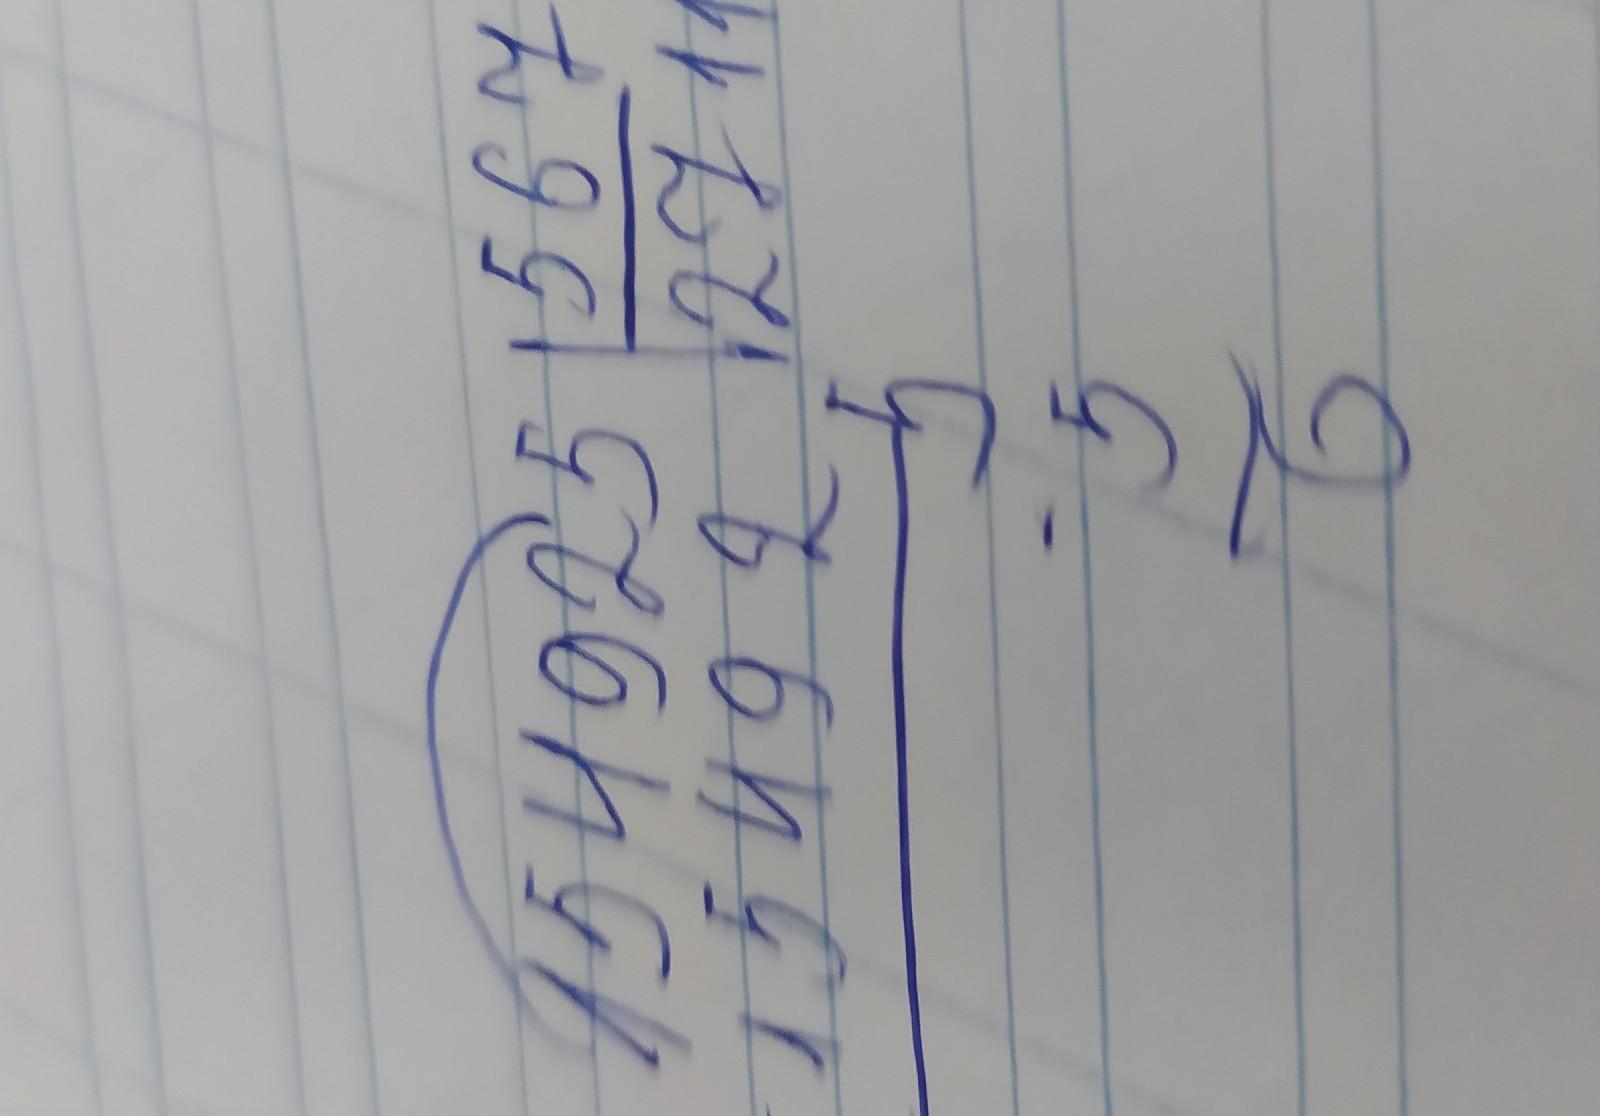 154925 567
- 15492 2711
5
- 5
0